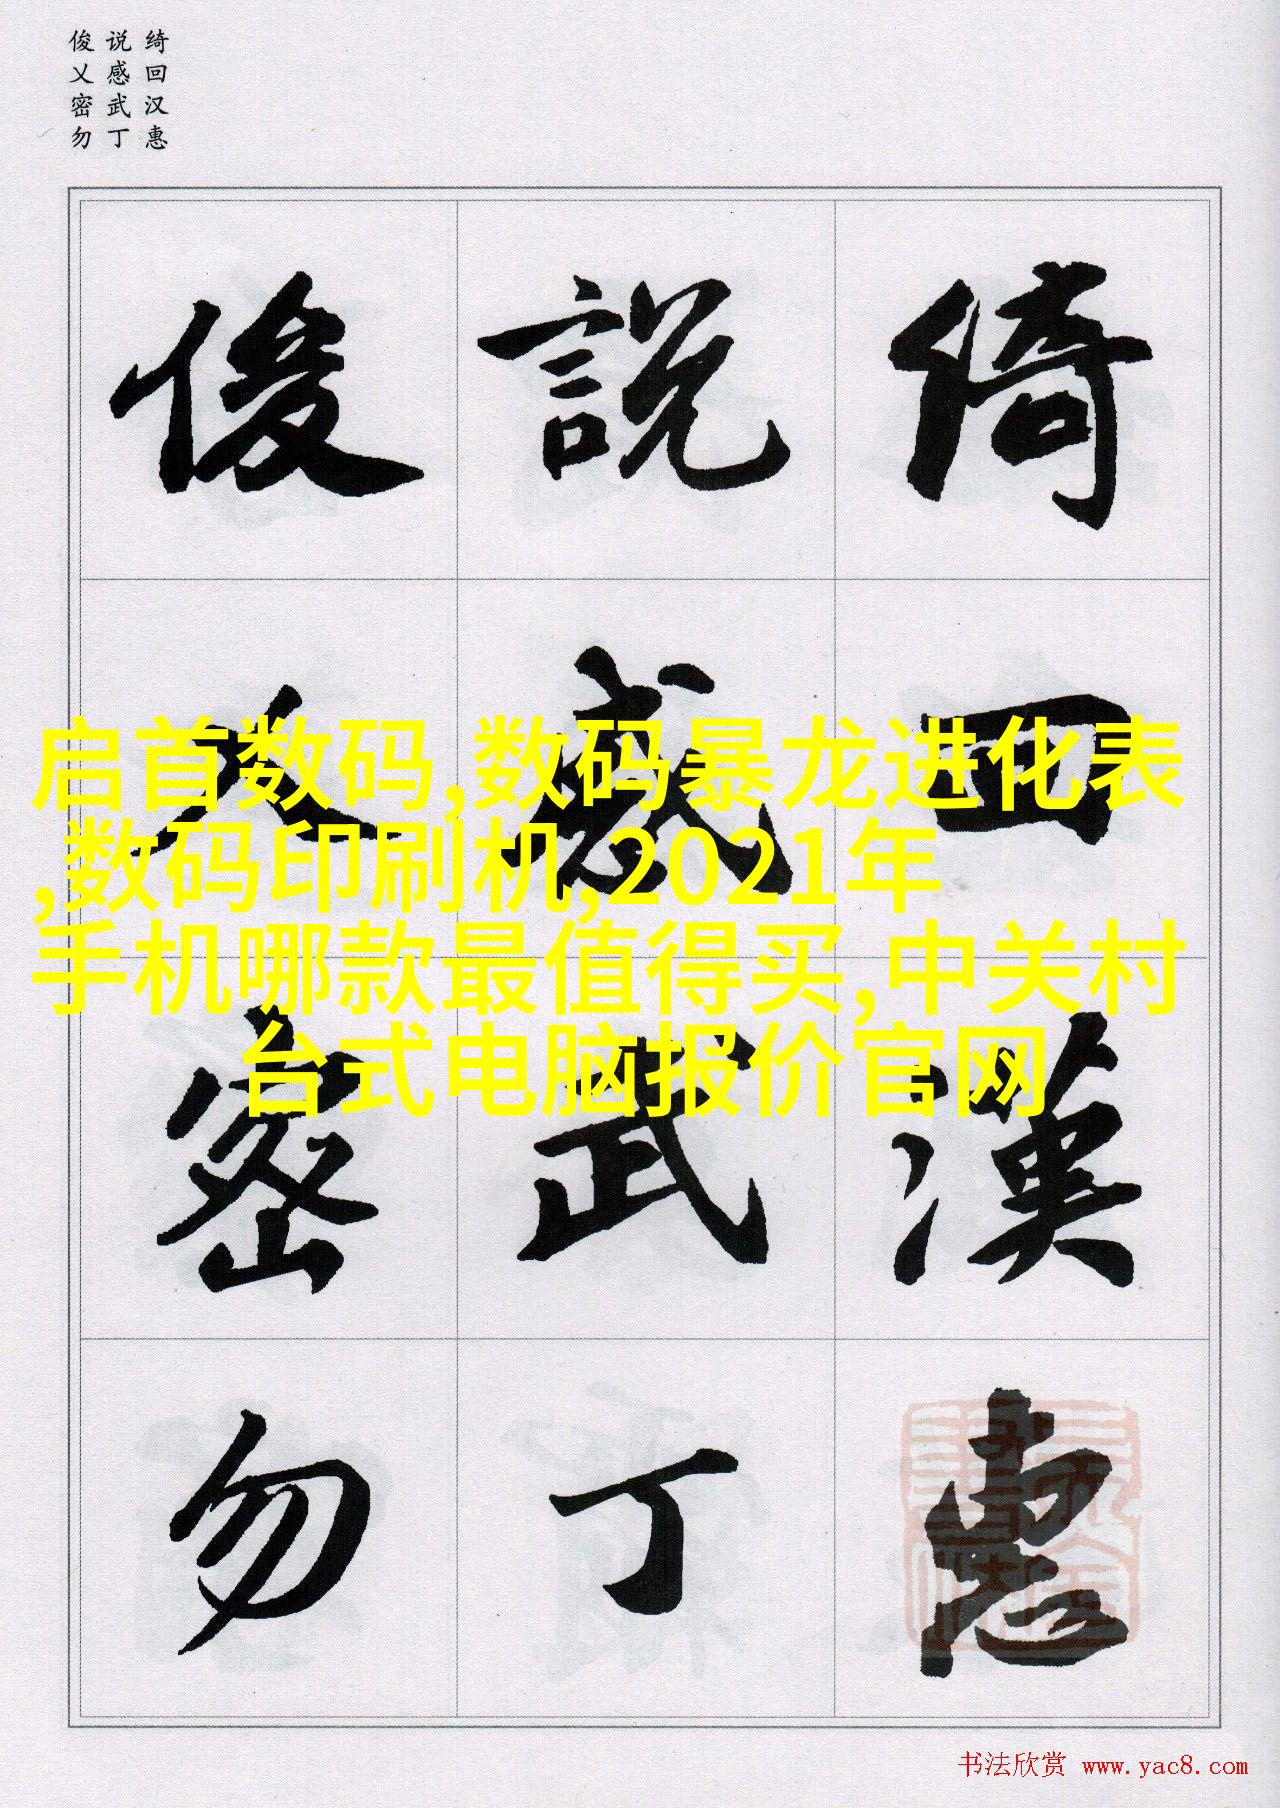 绮回汉惠
说感武丁
俊乂密勿
綺回漢惠
說感武丁
俊乂密勿
启首数码,数码暴龙进化表
,数码印刷机,2021年
手机哪款最值得买,中关村
台式电脑报价官网
书法欣赏 www.yac8.com